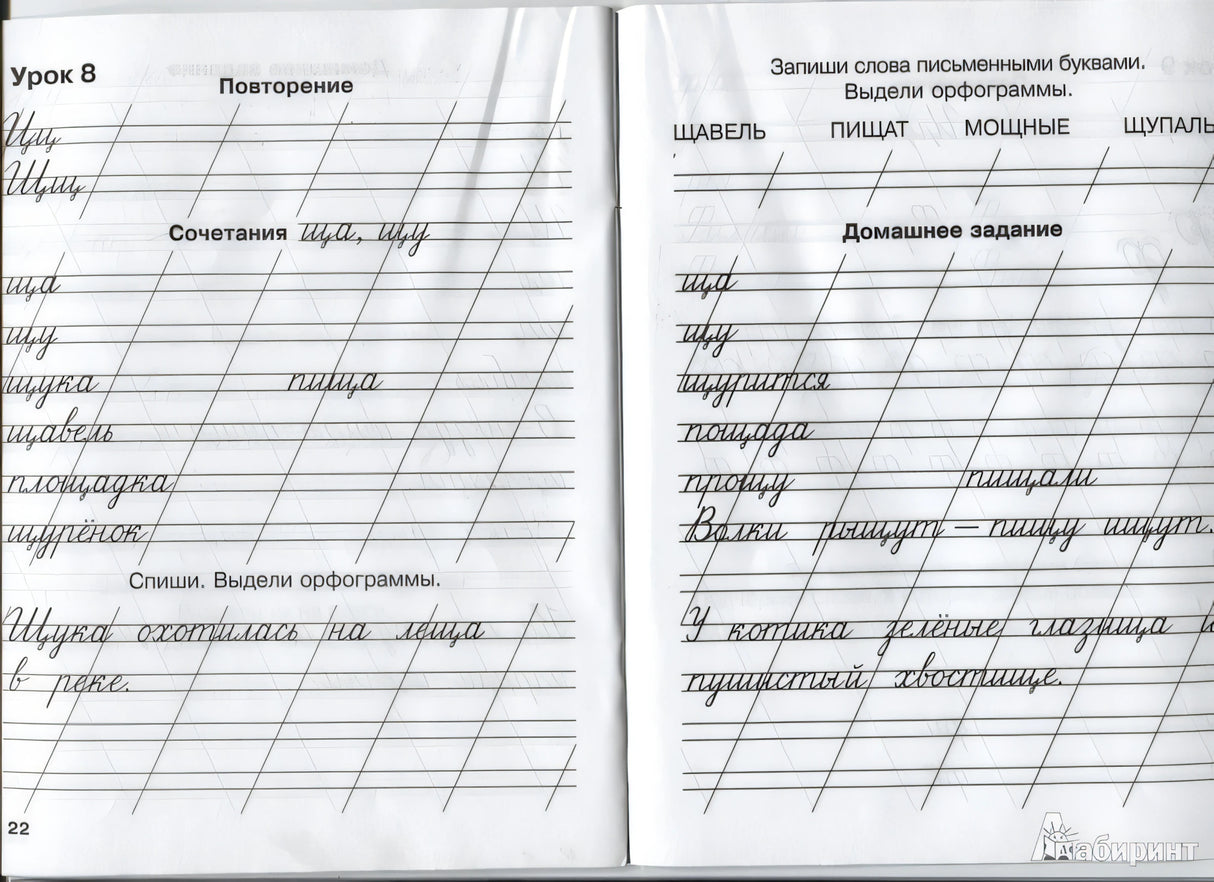 Урок 8
Повторение
Цц
Щщ
Сочетания ща, щу
ща
щу
щука пища
щавель
площадка
щурёнок
Спиши. Выдели орфограммы.
Щука охотилась на леща
в реке.
22
Запиши слова письменными буквами.
Выдели орфограммы.
ЩАВЕЛЬ ПИЩАТ МОЩНЫЕ ЩУПАЛЬ
Домашнее задание
ща
щу
щурится
пощада
прощу пищали
Волки рыщут — пищу ищут.
У котика зелёные глазища и
пушистый хвостище.
Лабиринт